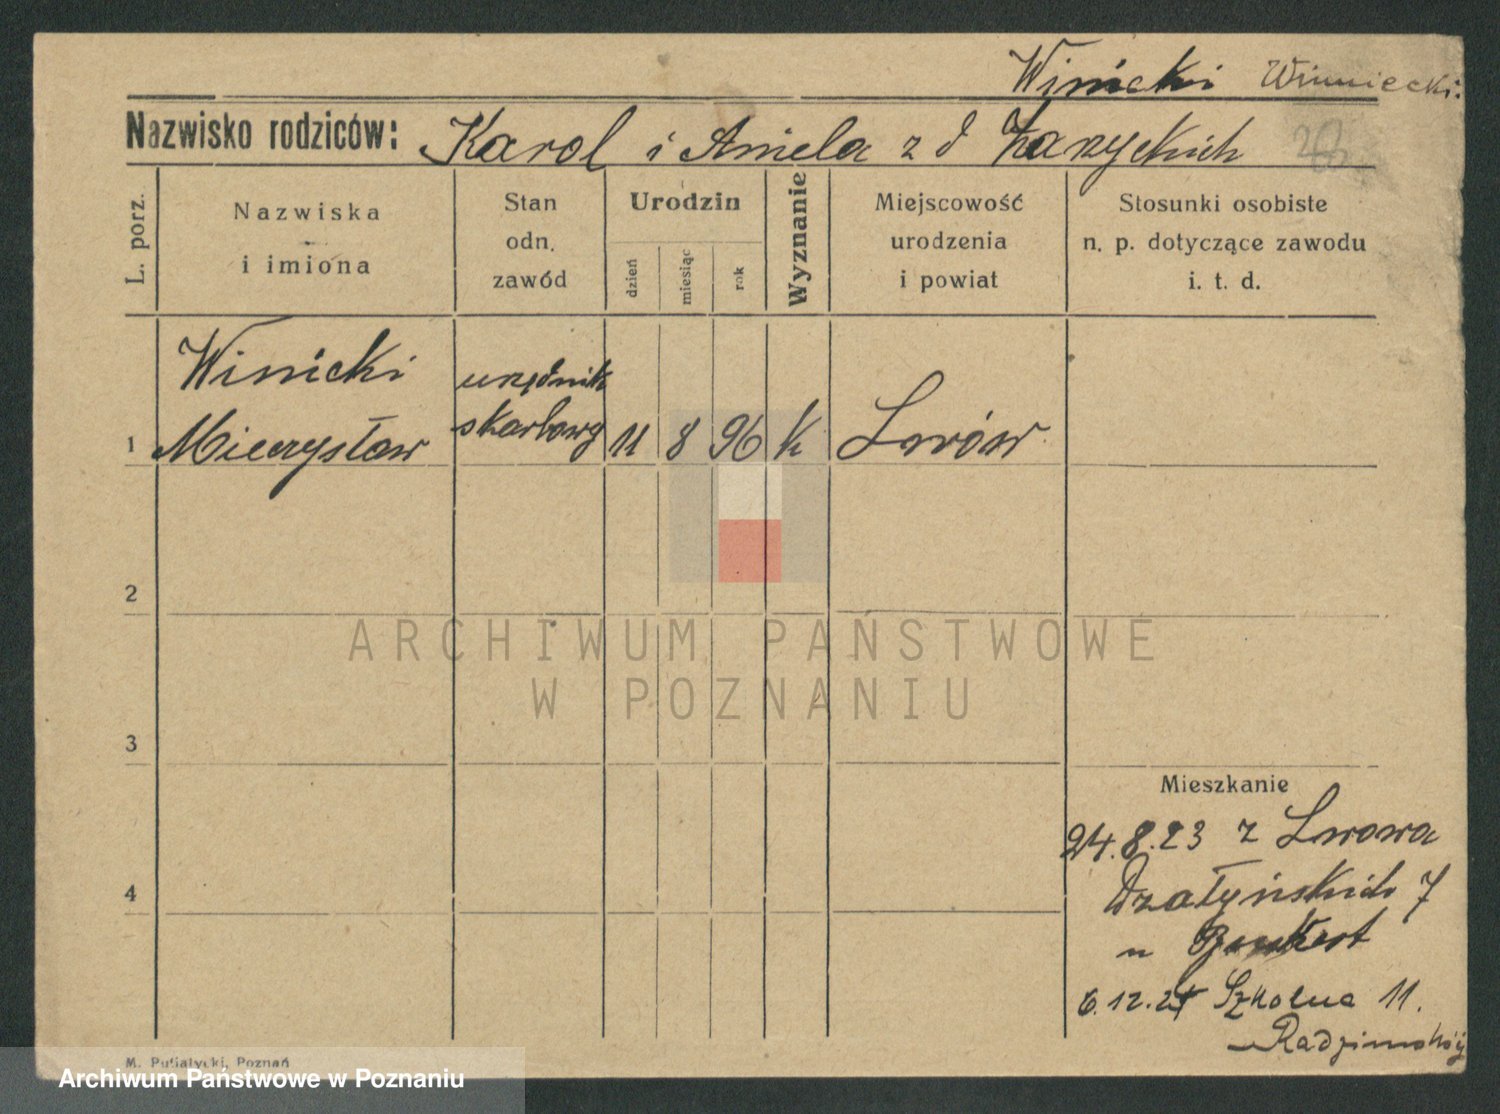 Winicki Winniecki.
Nazwisko rodziców: Karol i Aniela z d Zarzyckich
L. porz.
Nazwiska
i imiona
Stan
odn.
zawód
Urodzin
dzień
miesiąc
rok
Wyznanie
Miejscowość
urodzenia
i powiat
Stosunki osobiste
n. p. dotyczące zawodu
i. t. d.
Winicki
urzędnik
1 Mieczysław skarbowy 11 8 96 k Lwów
2
ARCHIWUM PAŃSTWOWE
W POZNANIU
3
Mieszkanie
24.8.23 z Lwowa
4
Działyńskich 7
u
6.12.24 Szkolna 11.
M. Putiatycki, Poznań
Archiwum Państwowe w Poznaniu